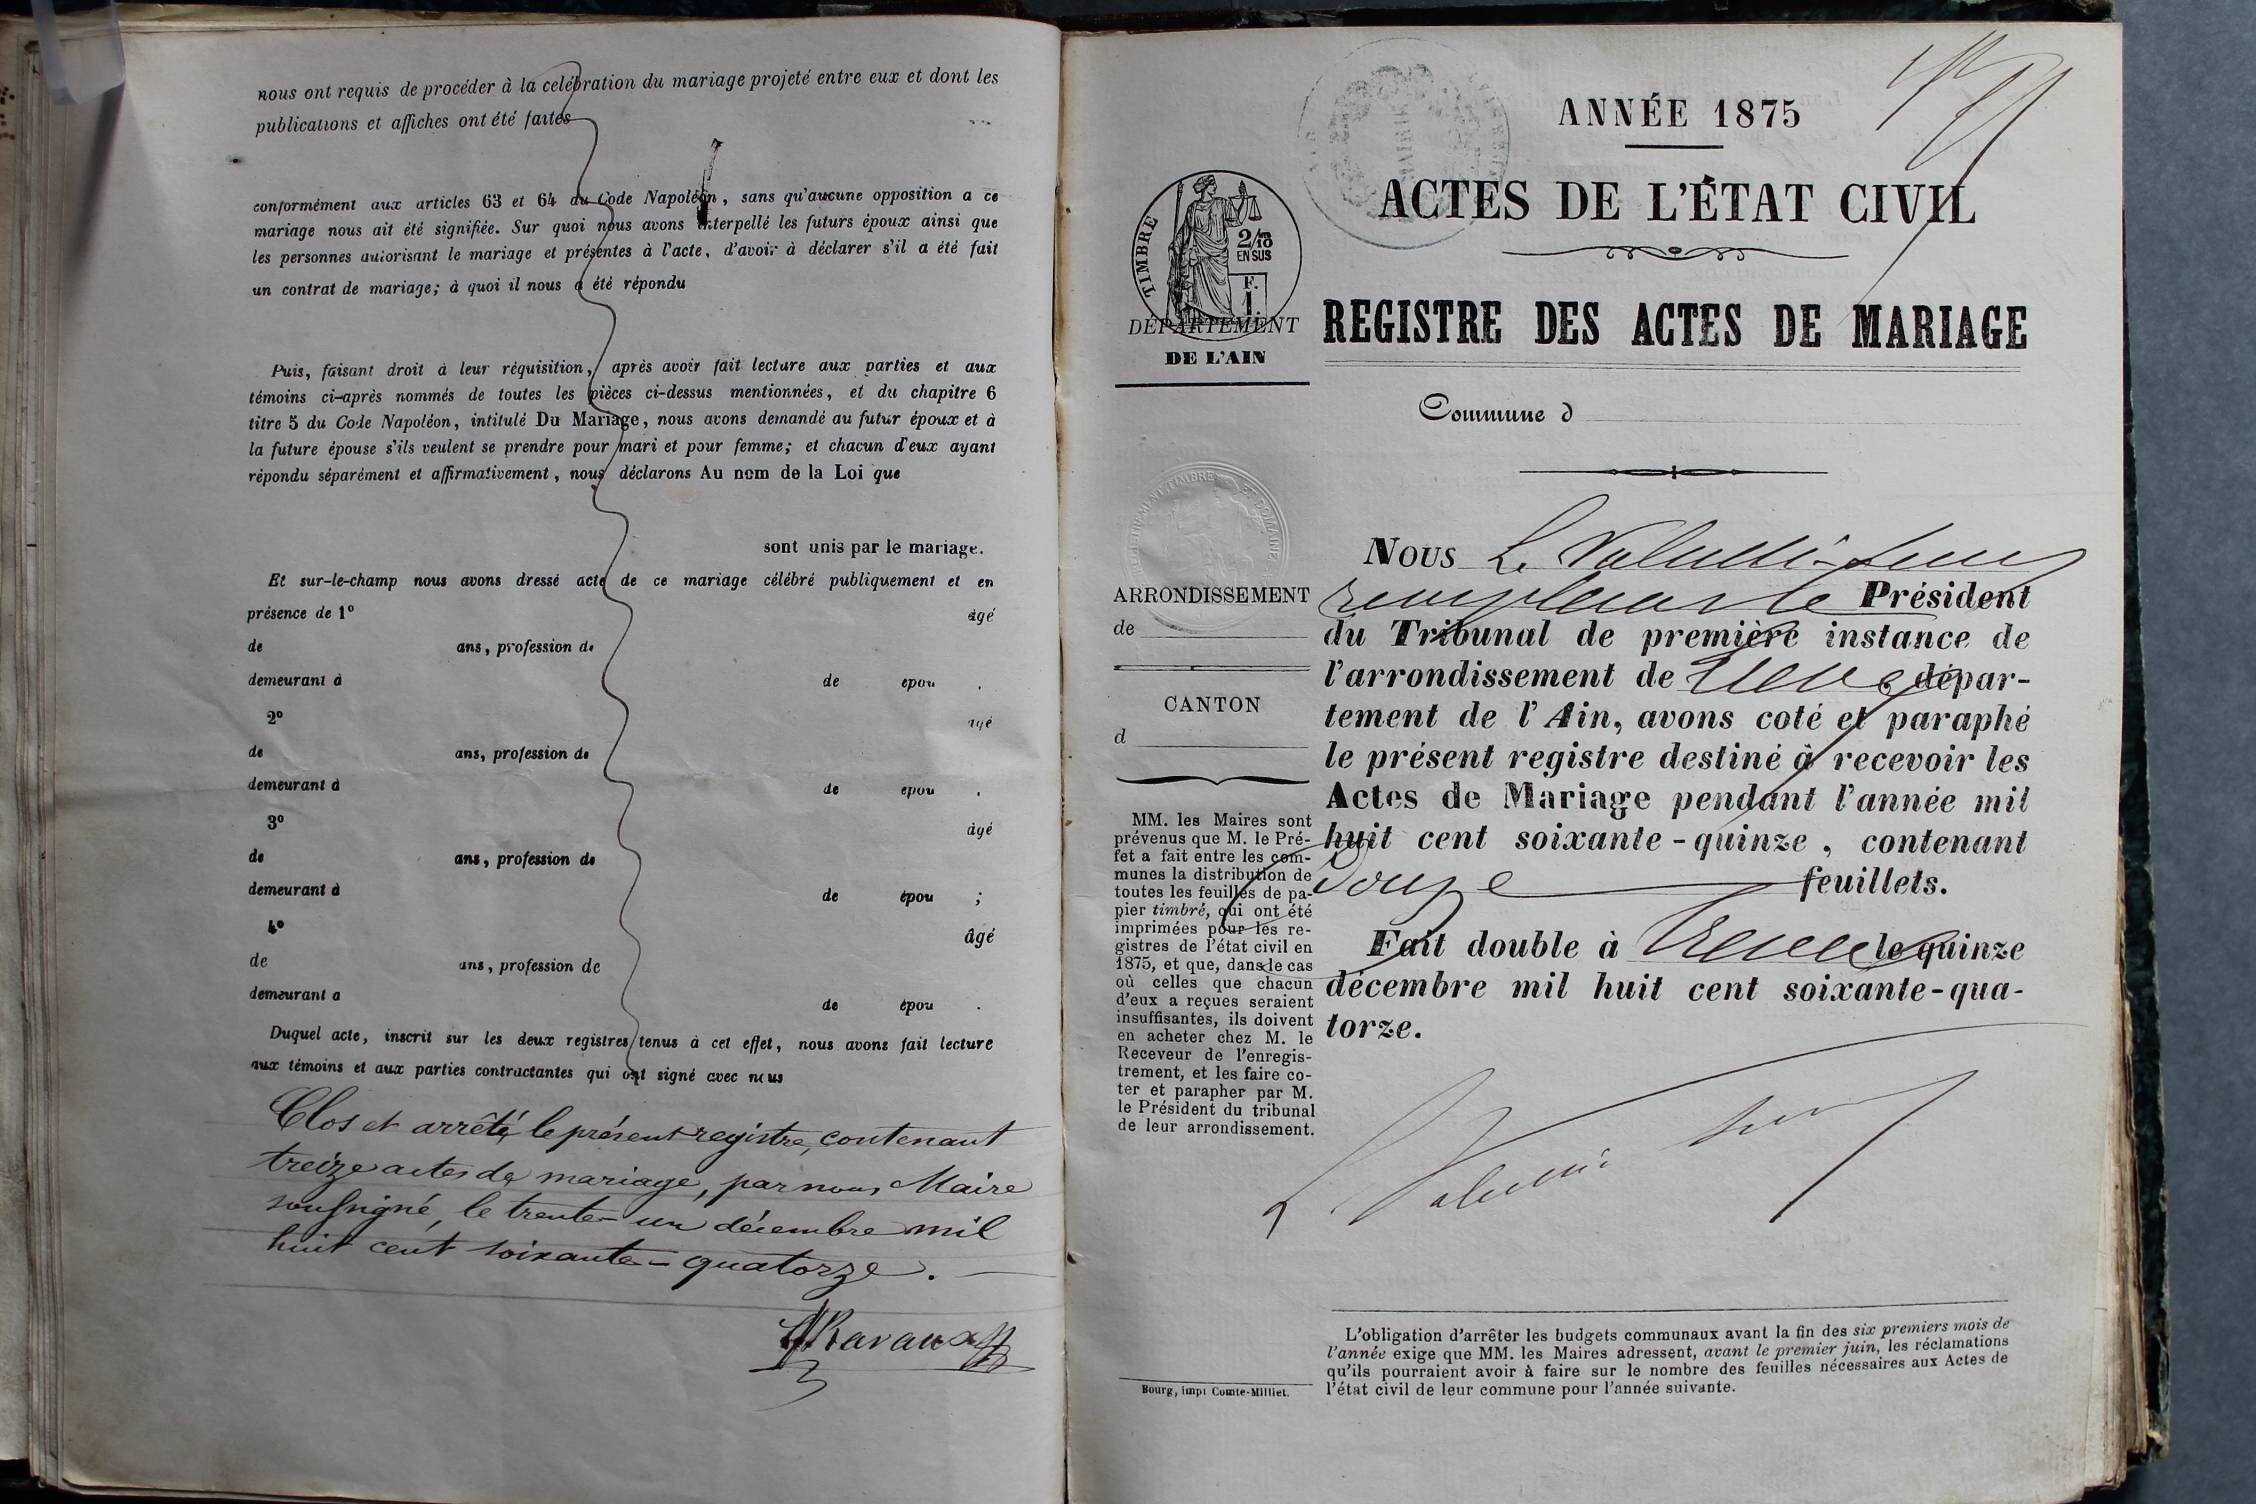 nous ont requis de procéder à la celébration du mariage projeté entre eux et dont les
publications et affiches ont été faites
conformément aux articles 63 et 64 du Code Napoléon, sans qu'aucune opposition a ce
mariage nous ait été signifiée. Sur quoi nous avons interpellé les futurs époux ainsi que
les personnes autorisant le mariage et présentes à l'acte, d'avoir à déclarer s'il a été fait
un contrat de mariage; à quoi il nous a été répondu
Puis, faisant droit à leur réquisition, après avoir fait lecture aux parties et aux
témoins ci-après nommés de toutes les pièces ci-dessus mentionnées, et du chapitre 6
titre 5 du Code Napoléon, intitulé Du Mariage, nous avons demandé au futur époux et à
la future épouse s'ils veulent se prendre pour mari et pour femme; et chacun d'eux ayant
répondu séparément et affirmativement, nous déclarons Au nom de la Loi que
sont unis par le mariage.
Et sur-le-champ nous avons dressé acte de ce mariage célébré publiquement et en
présence de 1º âgé
de ans, profession de
demeurant à de epou .
2º âgé
de ans, profession de
demeurant à de epou .
3º âgé
de ans, profession de
demeurant à de épou ;
4º âgé
de ans, profession de
demeurant a de épou .
Duquel acte, inscrit sur les deux registres tenus à cet effet, nous avons fait lecture
aux témoins et aux parties contractantes qui ont signé avec nous
Clos et arrêté le présent registre, contenant
treize actes de mariage, par nous Maire
soussigné, le trente-un décembre mil
huit cent soixante-quatorze.
Ravaux
ANNÉE 1875
ACTES DE L'ÉTAT CIVIL
MAIRIE
TIMBRE
2/10
EN SUS
F.
1.
DÉPARTEMENT
DE L'AIN
REGISTRE DES ACTES DE MARIAGE
Commune d
ARRONDISSEMENT
de
CANTON
d
MM. les Maires sont
prévenus que M. le Pré-
fet a fait entre les com-
munes la distribution de
toutes les feuilles de pa-
pier timbré, qui ont été
imprimées pour les re-
gistres de l'état civil en
1875, et que, dans le cas
où celles que chacun
d'eux a reçues seraient
insuffisantes, ils doivent
en acheter chez M. le
Receveur de l'enregis-
trement, et les faire co-
ter et parapher par M.
le Président du tribunal
de leur arrondissement.
Bourg, impr Comte-Milliet.
Nous
remplaçant le Président
du Tribunal de première instance de
l'arrondissement de dépar-
tement de l'Ain, avons coté et paraphé
le présent registre destiné à recevoir les
Actes de Mariage pendant l'année mil
huit cent soixante-quinze, contenant
Douze feuillets.
Fait double à le quinze
décembre mil huit cent soixante-qua-
torze.
L'obligation d'arrêter les budgets communaux avant la fin des six premiers mois de
l'année exige que MM. les Maires adressent, avant le premier juin, les réclamations
qu'ils pourraient avoir à faire sur le nombre des feuilles nécessaires aux Actes de
l'état civil de leur commune pour l'année suivante.